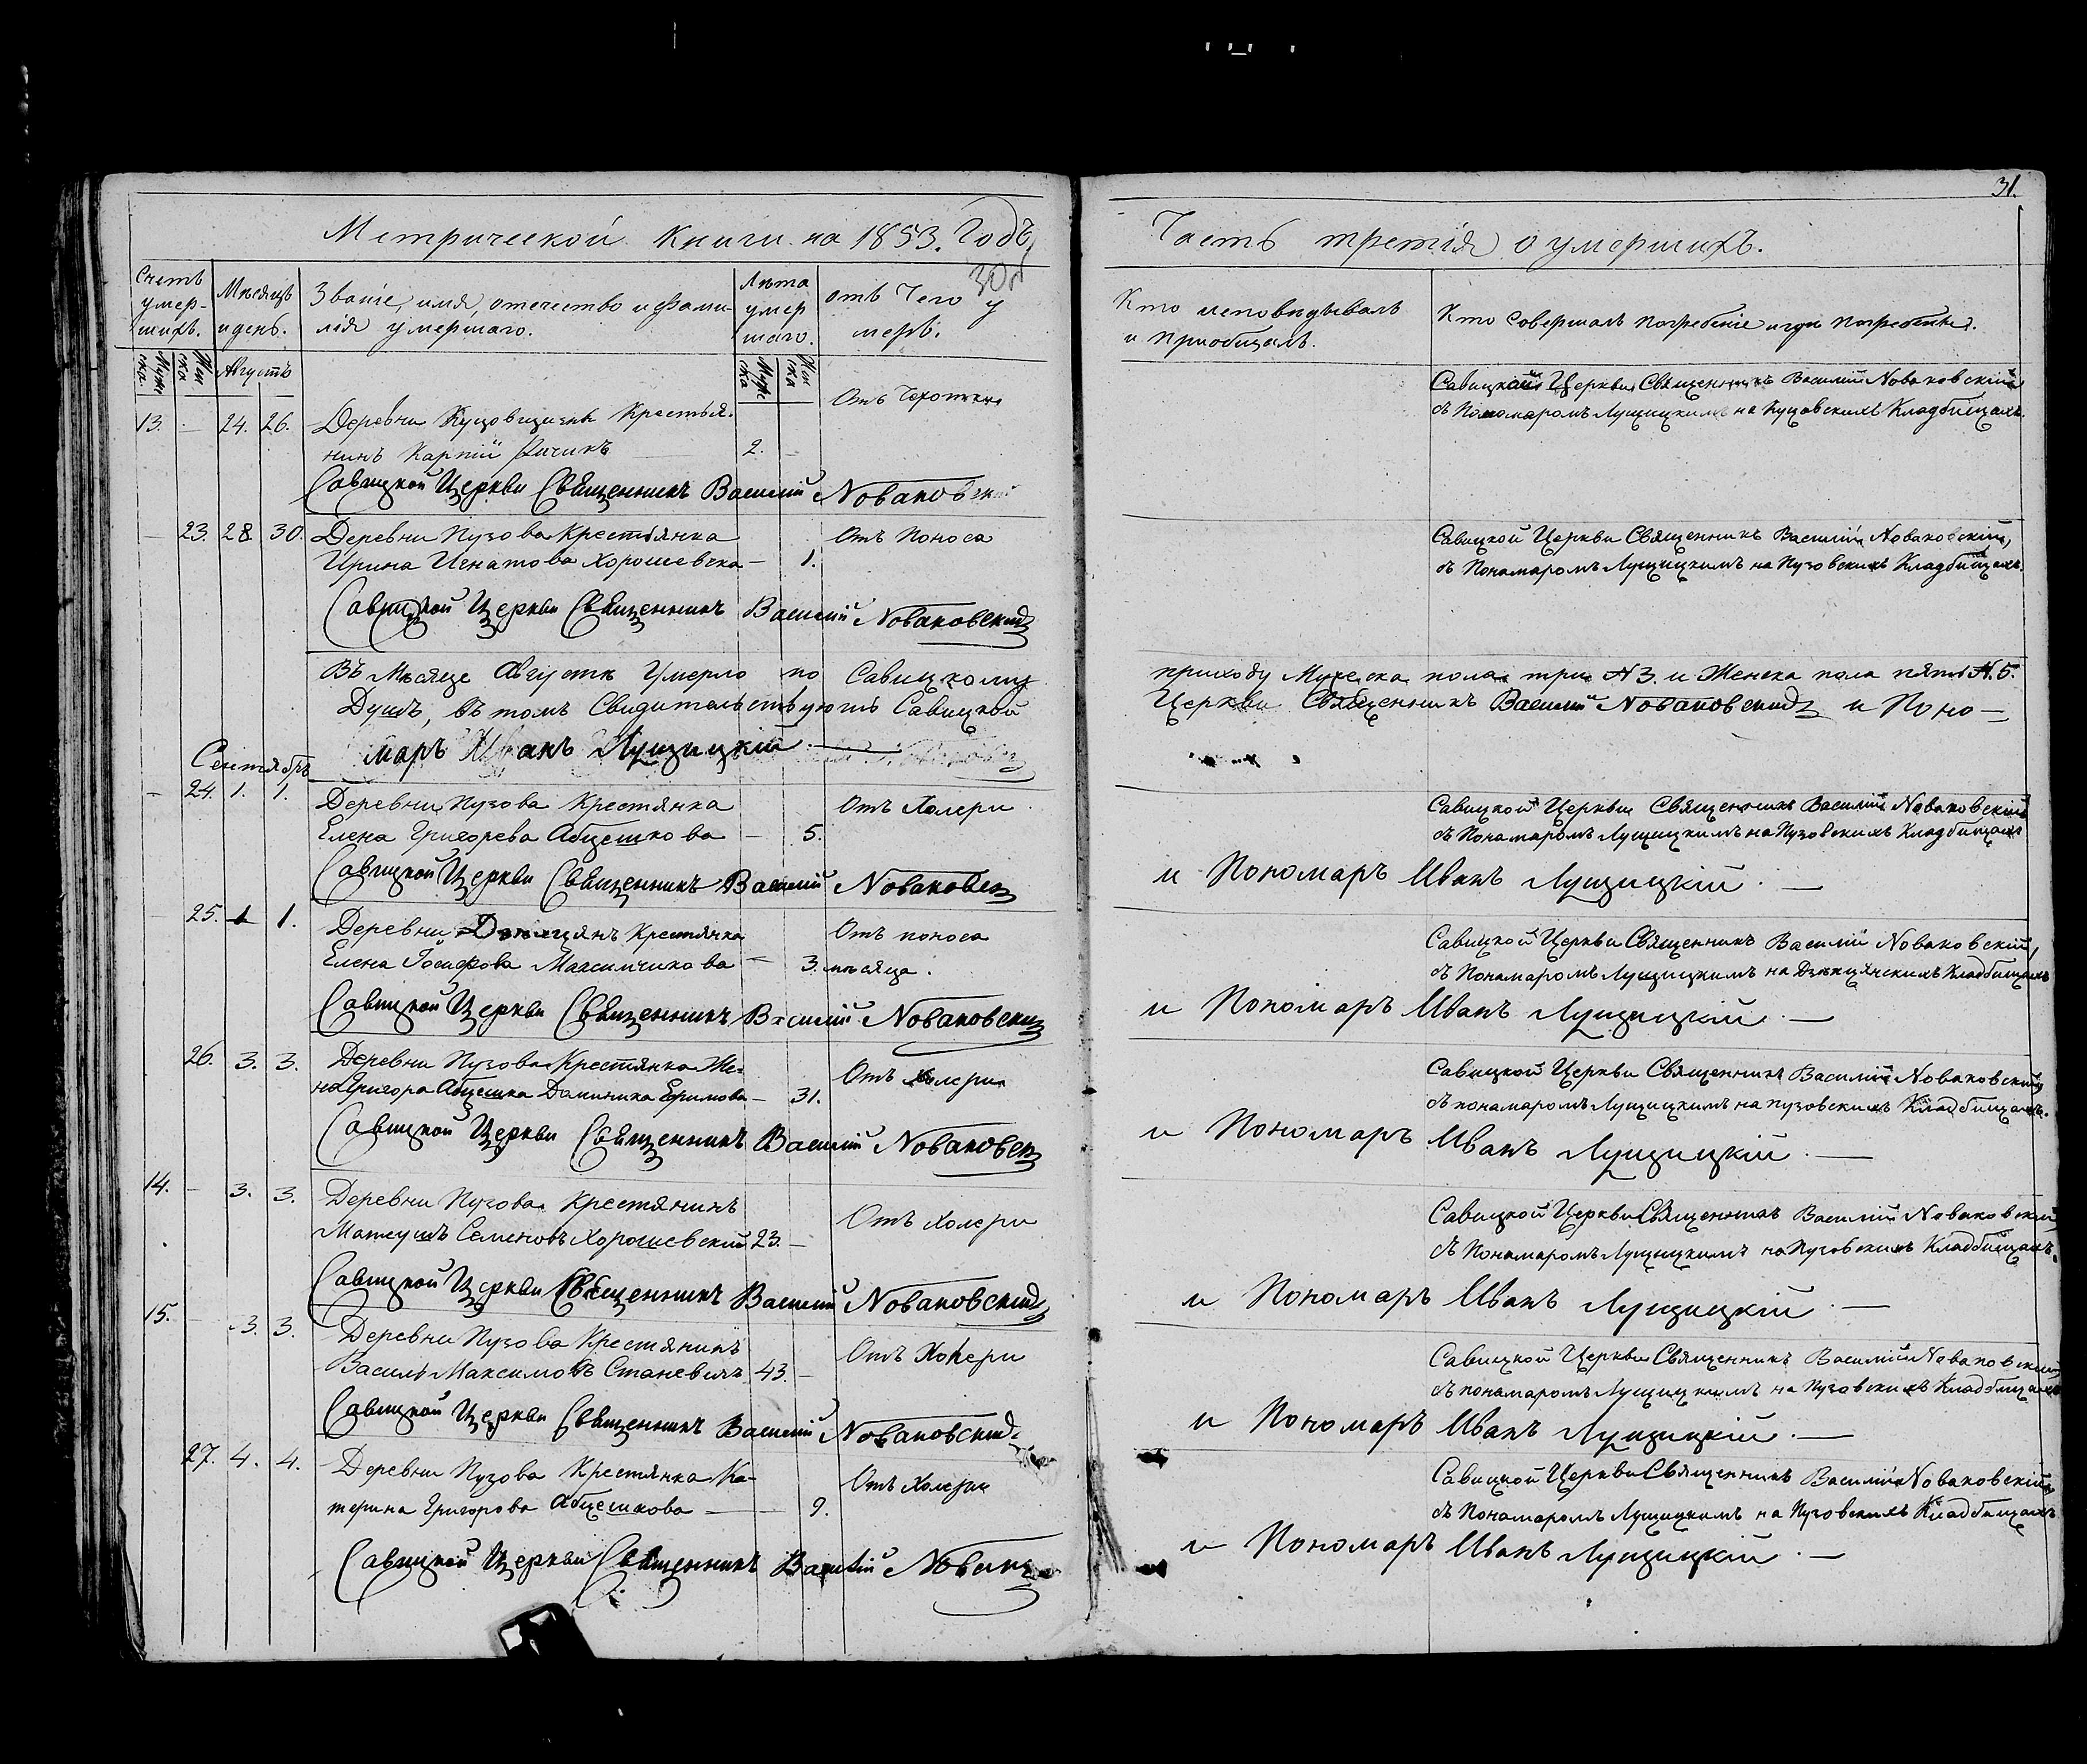 31.
Метрической Книги на 1853. Годъ,
30
Часть третія о умершихъ.
Счетъ умер-шихъ.
Мѣсяцъ и день.
Званіе, имя, отечество и фами-
лія умершаго.
Лѣта умер шаго.
отъ Чего у
меръ.
Кто исповѣдывалъ
и приобщалъ.
Кто Совершалъ погребеніе и гдѣ погребены.
Муже ска.
Жен ска
Августъ
Муже ска
Жен ска
13. — 24. 26. Деревни Крестья-
нинъ Карпій 2. —
Отъ
Савицкой Церкви Священникъ Василій Новаковскій
съ Пономаромъ Лущицкимъ на Кладбищахъ.
Савицкой Церкви Священникъ Василій Nоваковскій
— 23. 28. 30. Деревни Пузова Крестьянка Отъ Поноса
Ирина Игнатова Хорошевска — 1.
Савицкой Церкви Священникъ Василій Nоваковскій,
съ Понамаромъ Лущицкимъ на Пузовскихъ Кладбищахъ.
Савицкой Церкви Священникъ Василій Nоваковскій
Въ Мѣсяце Августѣ Умерло по Савицкому приходу Мужеска пола три N3. и Женска пола пять N.5.
Душъ, въ томъ Свидительствуютъ Савицкой Церкви Священникъ Василій Nоваковскій и Поно—
маръ Иванъ Лущицкій —
Сентябръ
— 24. 1. 1. Деревни Пузова Крестянка Отъ Холери
Елена Григорева Абцешкова — 5.
Савицкой Церкви Священникъ Василій Nоваковскій
съ Понамаромъ Лущицкимъ на Пузовскихъ Кладбищахъ
Савицкой Церкви Священникъ Василій Nоваковск и Пономаръ Иванъ Лущицкій. —
25. 1 1. Деревни Крестянка Отъ поноса
Елена Іосифова Максимчикова — 3. мѣсяца.
Савицкой Церкви Священникъ Василій Nоваковскій,
съ Понамаромъ Лущицкимъ на Кладбищахъ
Савицкой Церкви Священникъ Василій Nоваковскій и Пономаръ Иванъ Лущицкій. —
26. 3. 3. Деревни Пузова Крестянка Же-
на Григора Абцешка Даминика Ефимова — 31.
Отъ Холери
Савицкой Церкви Священникъ Василій Nоваковскій
съ понамаромъ Лущицкимъ на пузовскихъ Кладбищахъ.
Савицкой Церкви Священникъ Василій Nоваковск и Пономаръ Иванъ Лущицкій. —
14. — 3. 3. Деревни Пузова Крестянинъ Отъ Холери
Матеушъ Семеновъ Хорошевскій 23. —
Савицкой Церкви Священникъ Василій Nоваковскій
съ Понамаромъ Лущицкимъ на Пузовскихъ Кладбищахъ.
Савицкой Церкви Священникъ Василій Nоваковскій и Пономаръ Иванъ Лущицкій. —
15. — 3. 3. Деревни Пузова Крестянинъ Отъ Холери
Василь Максимовъ Станевичъ 43. —
Савицкой Церкви Священникъ Василій Nоваковскій
съ понамаромъ Лущицкимъ на Пузовскихъ Кладбищахъ
Савицкой Церкви Священникъ Василій Nоваковскій и Пономаръ Иванъ Лущицкій. —
27. 4. 4. Деревни Пузова Крестянка Ка-
терина Григорова Абцешкова — 9.
Отъ Холери
Савицкой Церкви Священникъ Василій Nоваковскій
съ Понамаромъ Лущицкимъ на Пузовскихъ Кладбищахъ
Савицкой Церкви Священникъ Василій Nовак и Пономаръ Иванъ Лущицкій. —